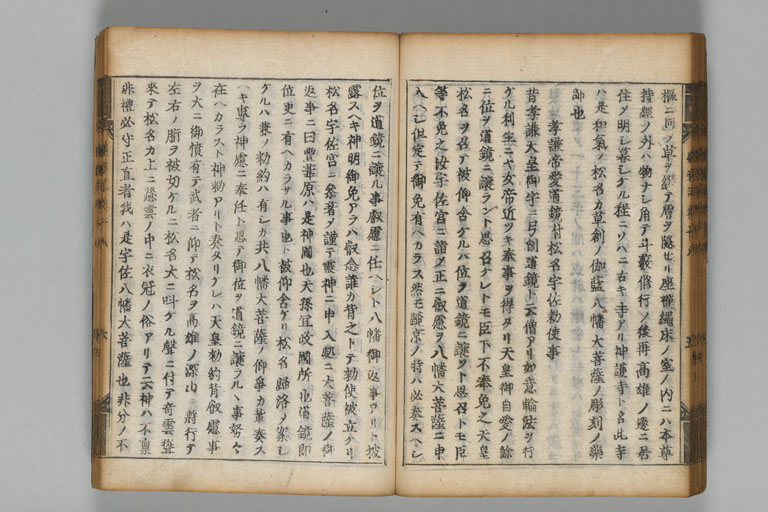 樞ニ同ノ草ヲ綴テ膚ヲ隱セリ座禪繩床ノ室ノ内ニハ本尊
持經ノ外ハ物ナシ角テ斗藪修行ノ後再高雄ノ邊ニ居
住ヲ明シ暮シケル程ニソハニ古キ寺アリ神護寺ト名此寺
ハ是和氣ノ松名カ草創ノ伽藍八幡大菩薩ノ彫刻ノ藥
師也
孝謙帝愛道鏡付松名宇佐勅使事
昔孝謙天皇御宇ニ弓削道鏡ト云僧アリ如意輪法ヲ行
ケル利生ニヤ女帝近ツキ奉事ヲ得タリ天皇御自愛ノ餘
ニ位ヲ道鏡ニ讓ラント思召ケレトモ臣下不奉免之天皇
松名ヲ召テ被仰含ケルハ位ヲ道鏡ニ讓ラント思召トモ臣
等不免之汝宇佐宮ニ詣ノ正ニ叡慮ヲ八幡大菩薩ニ申
入ヘシ但定テ御免有ヘカラス然モ歸京ノ時ハ必奏スヘシ
位ヲ道鏡ニ讓ル事叡慮ニ任ヘシト八幡御返事アリト披
露スヘキ神明御免アラハ叡念誰カ背之トテ勅使被立ケリ
松名宇佐宮ニ參着ノ謹テ靈神ニ申入處ニ大菩薩ノ御
返事ニ曰豐葦原ハ是神國也天孫宜政國所也道鏡即
位更ニ有ヘカラサル事也ト被仰含ケリ松名歸洛ノ案シ
ケルハ兼ノ勅約ハ有シカ共八幡大菩薩ノ仰爭カ葦奏ス
ヘキ專ラ神慮ニ奉任ト思テ御位ヲ道鏡ニ讓ラル丶事努々
在ヘカラスト神勅アリト奏タリケレハ天皇勅約背叡慮事
ヲ大ニ御憤有テ武者ニ仰テ松名ヲ高雄ノ深山ニ將行テ
左右ノ脚ヲ被切ケルニ松名大ニ叫ケル聲ニ付テ奇雲聳
來テ松名カ上ニ懸雲ノ中ニ衣冠ノ俗アリテ云神ハ不稟
非禮必守正直者我ハ是宇佐八幡大菩薩也非分ノ不